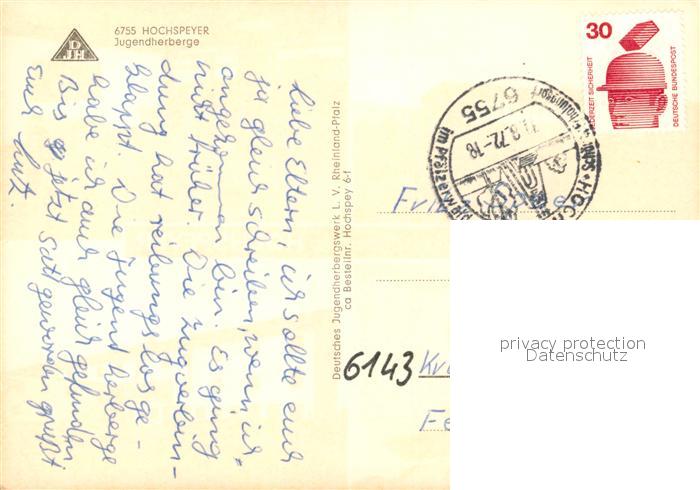 6755 HOCHSPEYER
Jugendherberge
DJH
Liebe Eltern, ich sollte euch
ja gleich schreiben, wenn ich
angekommen bin. Es ging
nicht früher. Die Zugverbin-
dung hat reibungslos ge-
klappt. Die Jugendherberge
habe ich auch gleich gefunden
Bis jetzt satt geworden grüßt
Euch Lutz.
Deutsches Jugendherbergswerk L. V. Rheinland-Pfalz
ca Bestellnr. Hochspey 6-f
30
JEDERZEIT SICHERHEIT
DEUTSCHE BUNDESPOST
6755
.8.72-18
im Pfälzerw
6143
privacy protection
Datenschutz